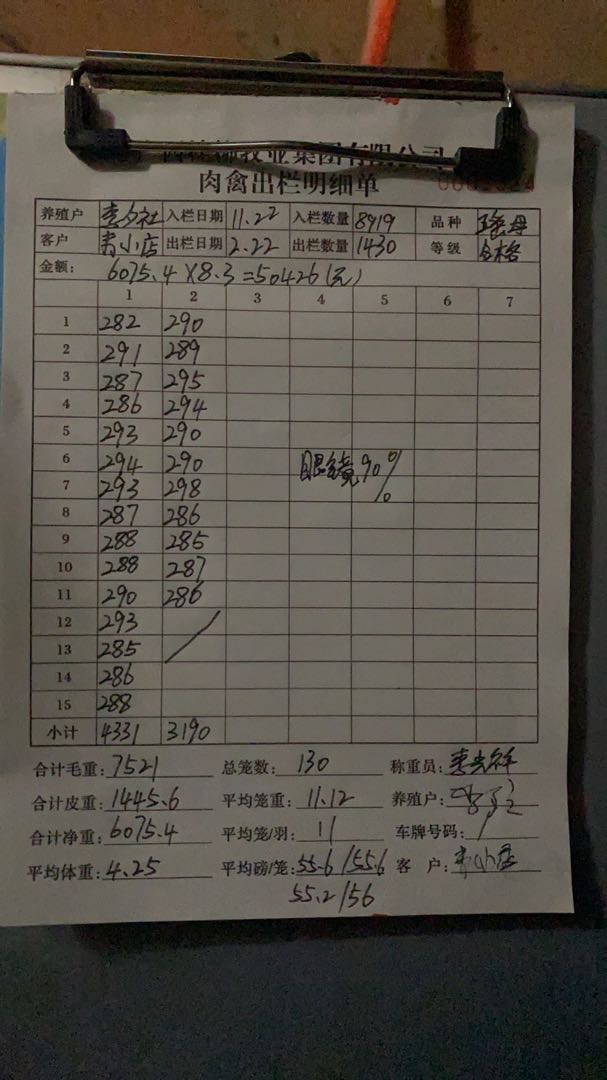 牧业集团有限公司
肉禽出栏明细单
养殖户 入栏日期 11.22 入栏数量 8919 品种
客户 肖小店 出栏日期 2.22 出栏数量 1430 等级 合格
金额: 6075.4×8.3=50426(元)
1 2 3 4 5 6 7
1 282 290
2 291 289
3 287 295
4 286 294
5 293 290
6 294 290 眼镜90%
7 293 298
8 287 286
9 288 285
10 288 287
11 290 286
12 293
13 285
14 286
15 288
小计 4331 3190
合计毛重: 7521 总笼数: 130 称重员:
合计皮重: 1445.6 平均笼重: 11.12 养殖户:
合计净重: 6075.4 平均笼/羽: 11 车牌号码: /
平均体重: 4.25 平均磅/笼: 55.6/55.6 客 户:
55.2/56